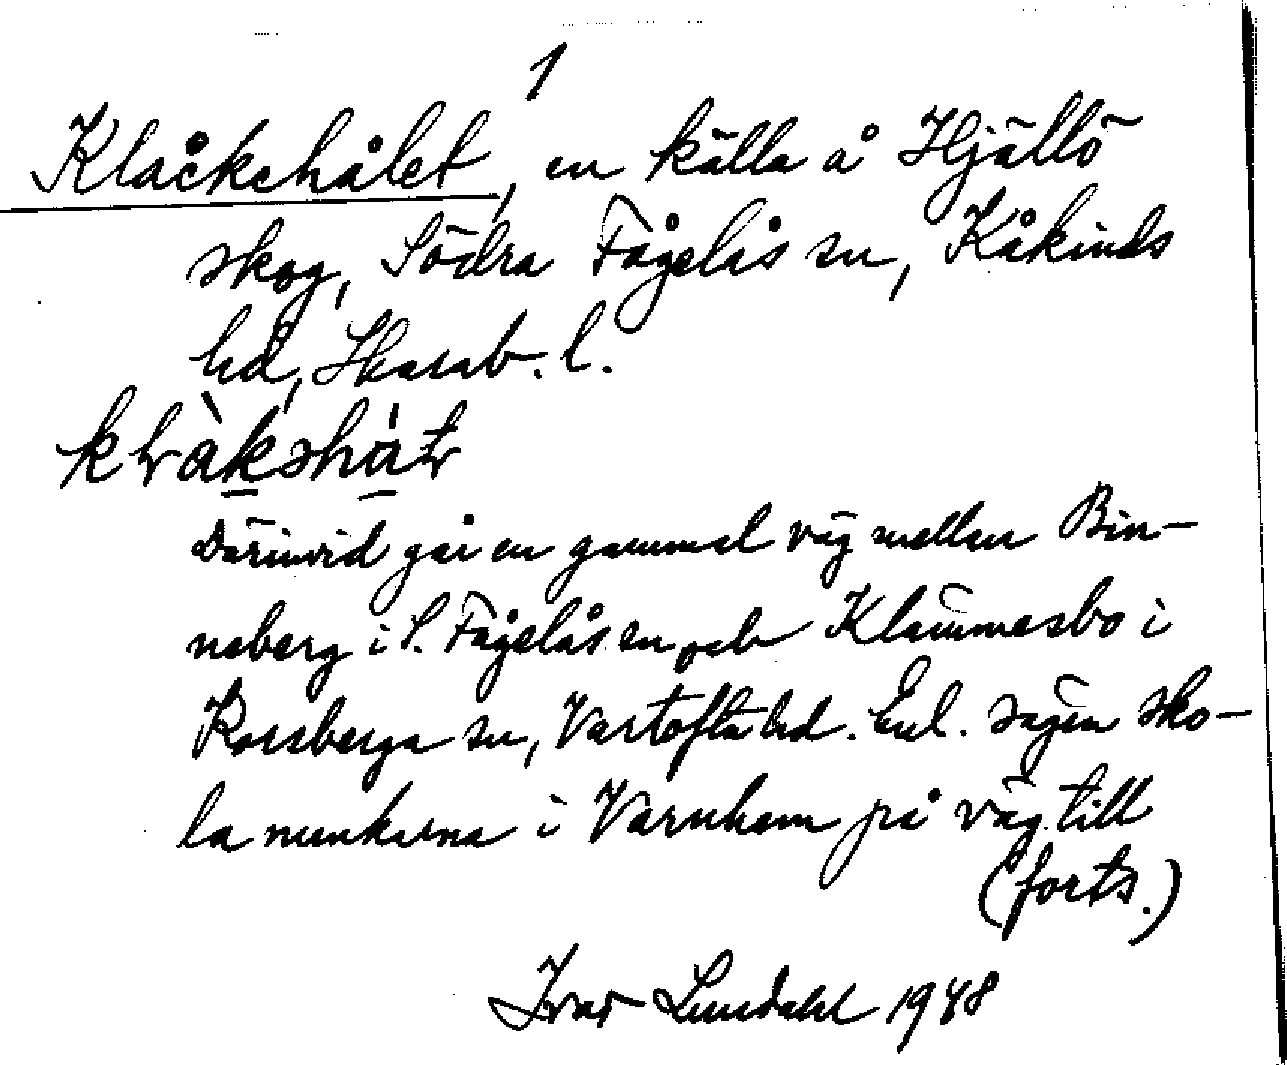 1
Klåckehålet, en källa å Hjällö
skog, Södra Fågelås sn, Kåkinds
hd, Skarab. l.
Därinvid går en gammal väg mellan Bin-
neberg i S. Fågelås sn och Klämmesbo i
Korsberga sn, Vartofta hd. Enl. sägen sko-
la munkarna i Varnhem på väg till
(forts.)
Ivar Lundahl 1948